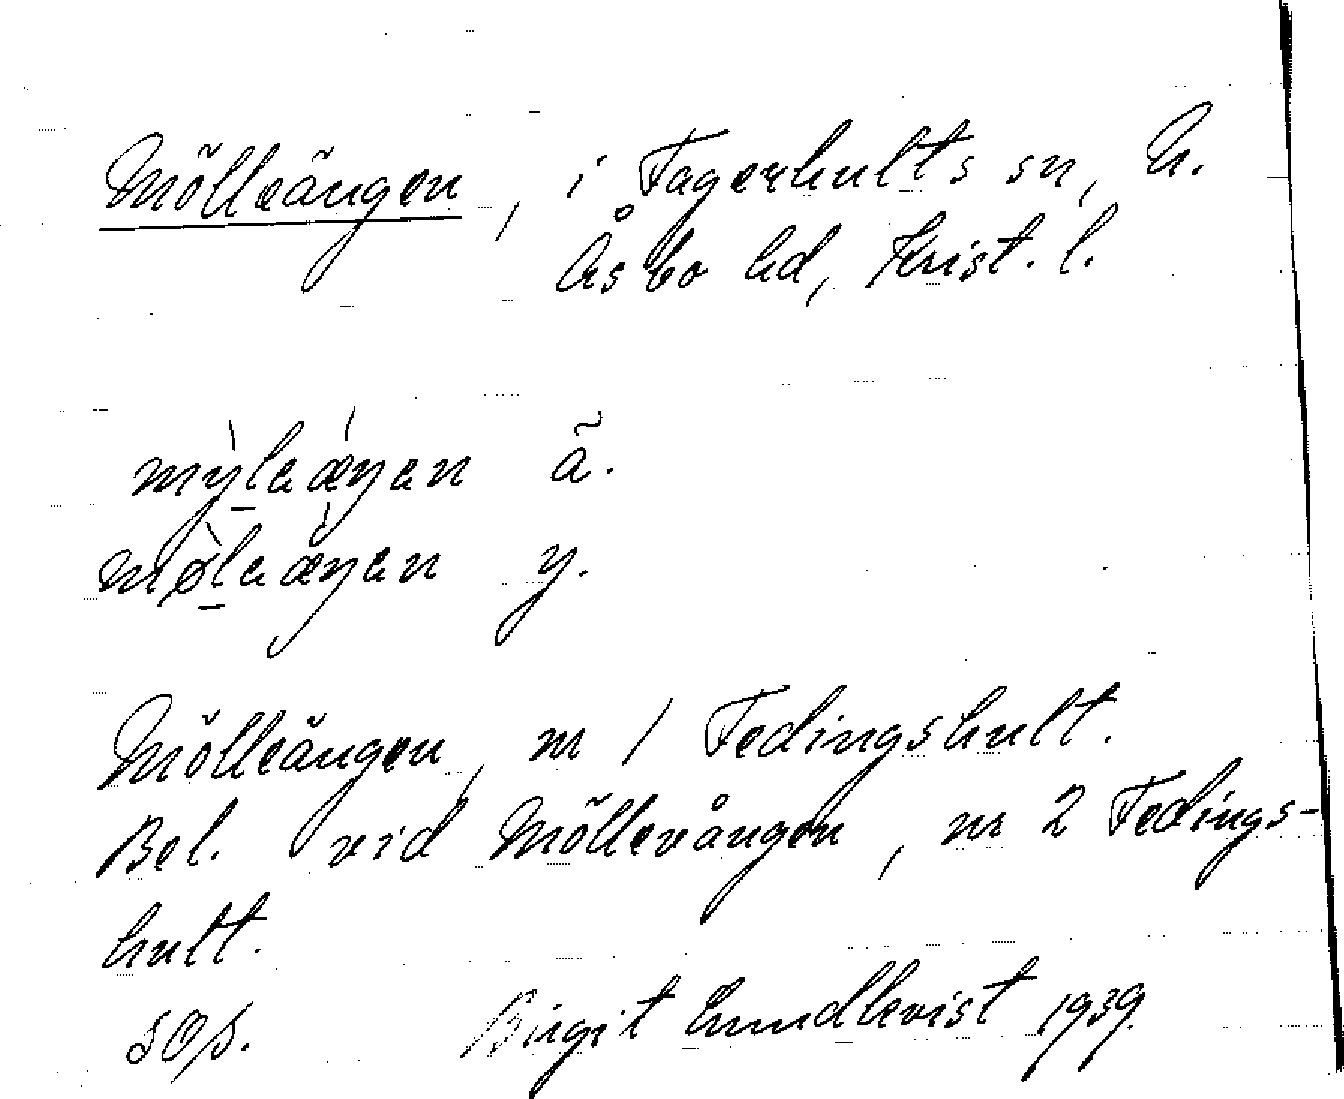 Mölleängen, i Fagerhults sn, N.
Åsbo hd, Krist. l.
mỳ̱leǽŋen ä.
mø̱̀leǽŋen y.
Mölleängen, nr 1 Fedingshult.
Bel. vid Möllevången, nr 2 Fedings-
hult.
sop. Birgit Lundkvist 1939.